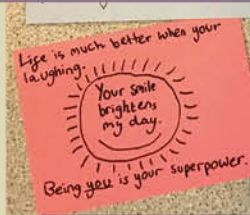 Life is much better when your
laughing.
Your smile
brightens
my day.
Being you is your superpower.